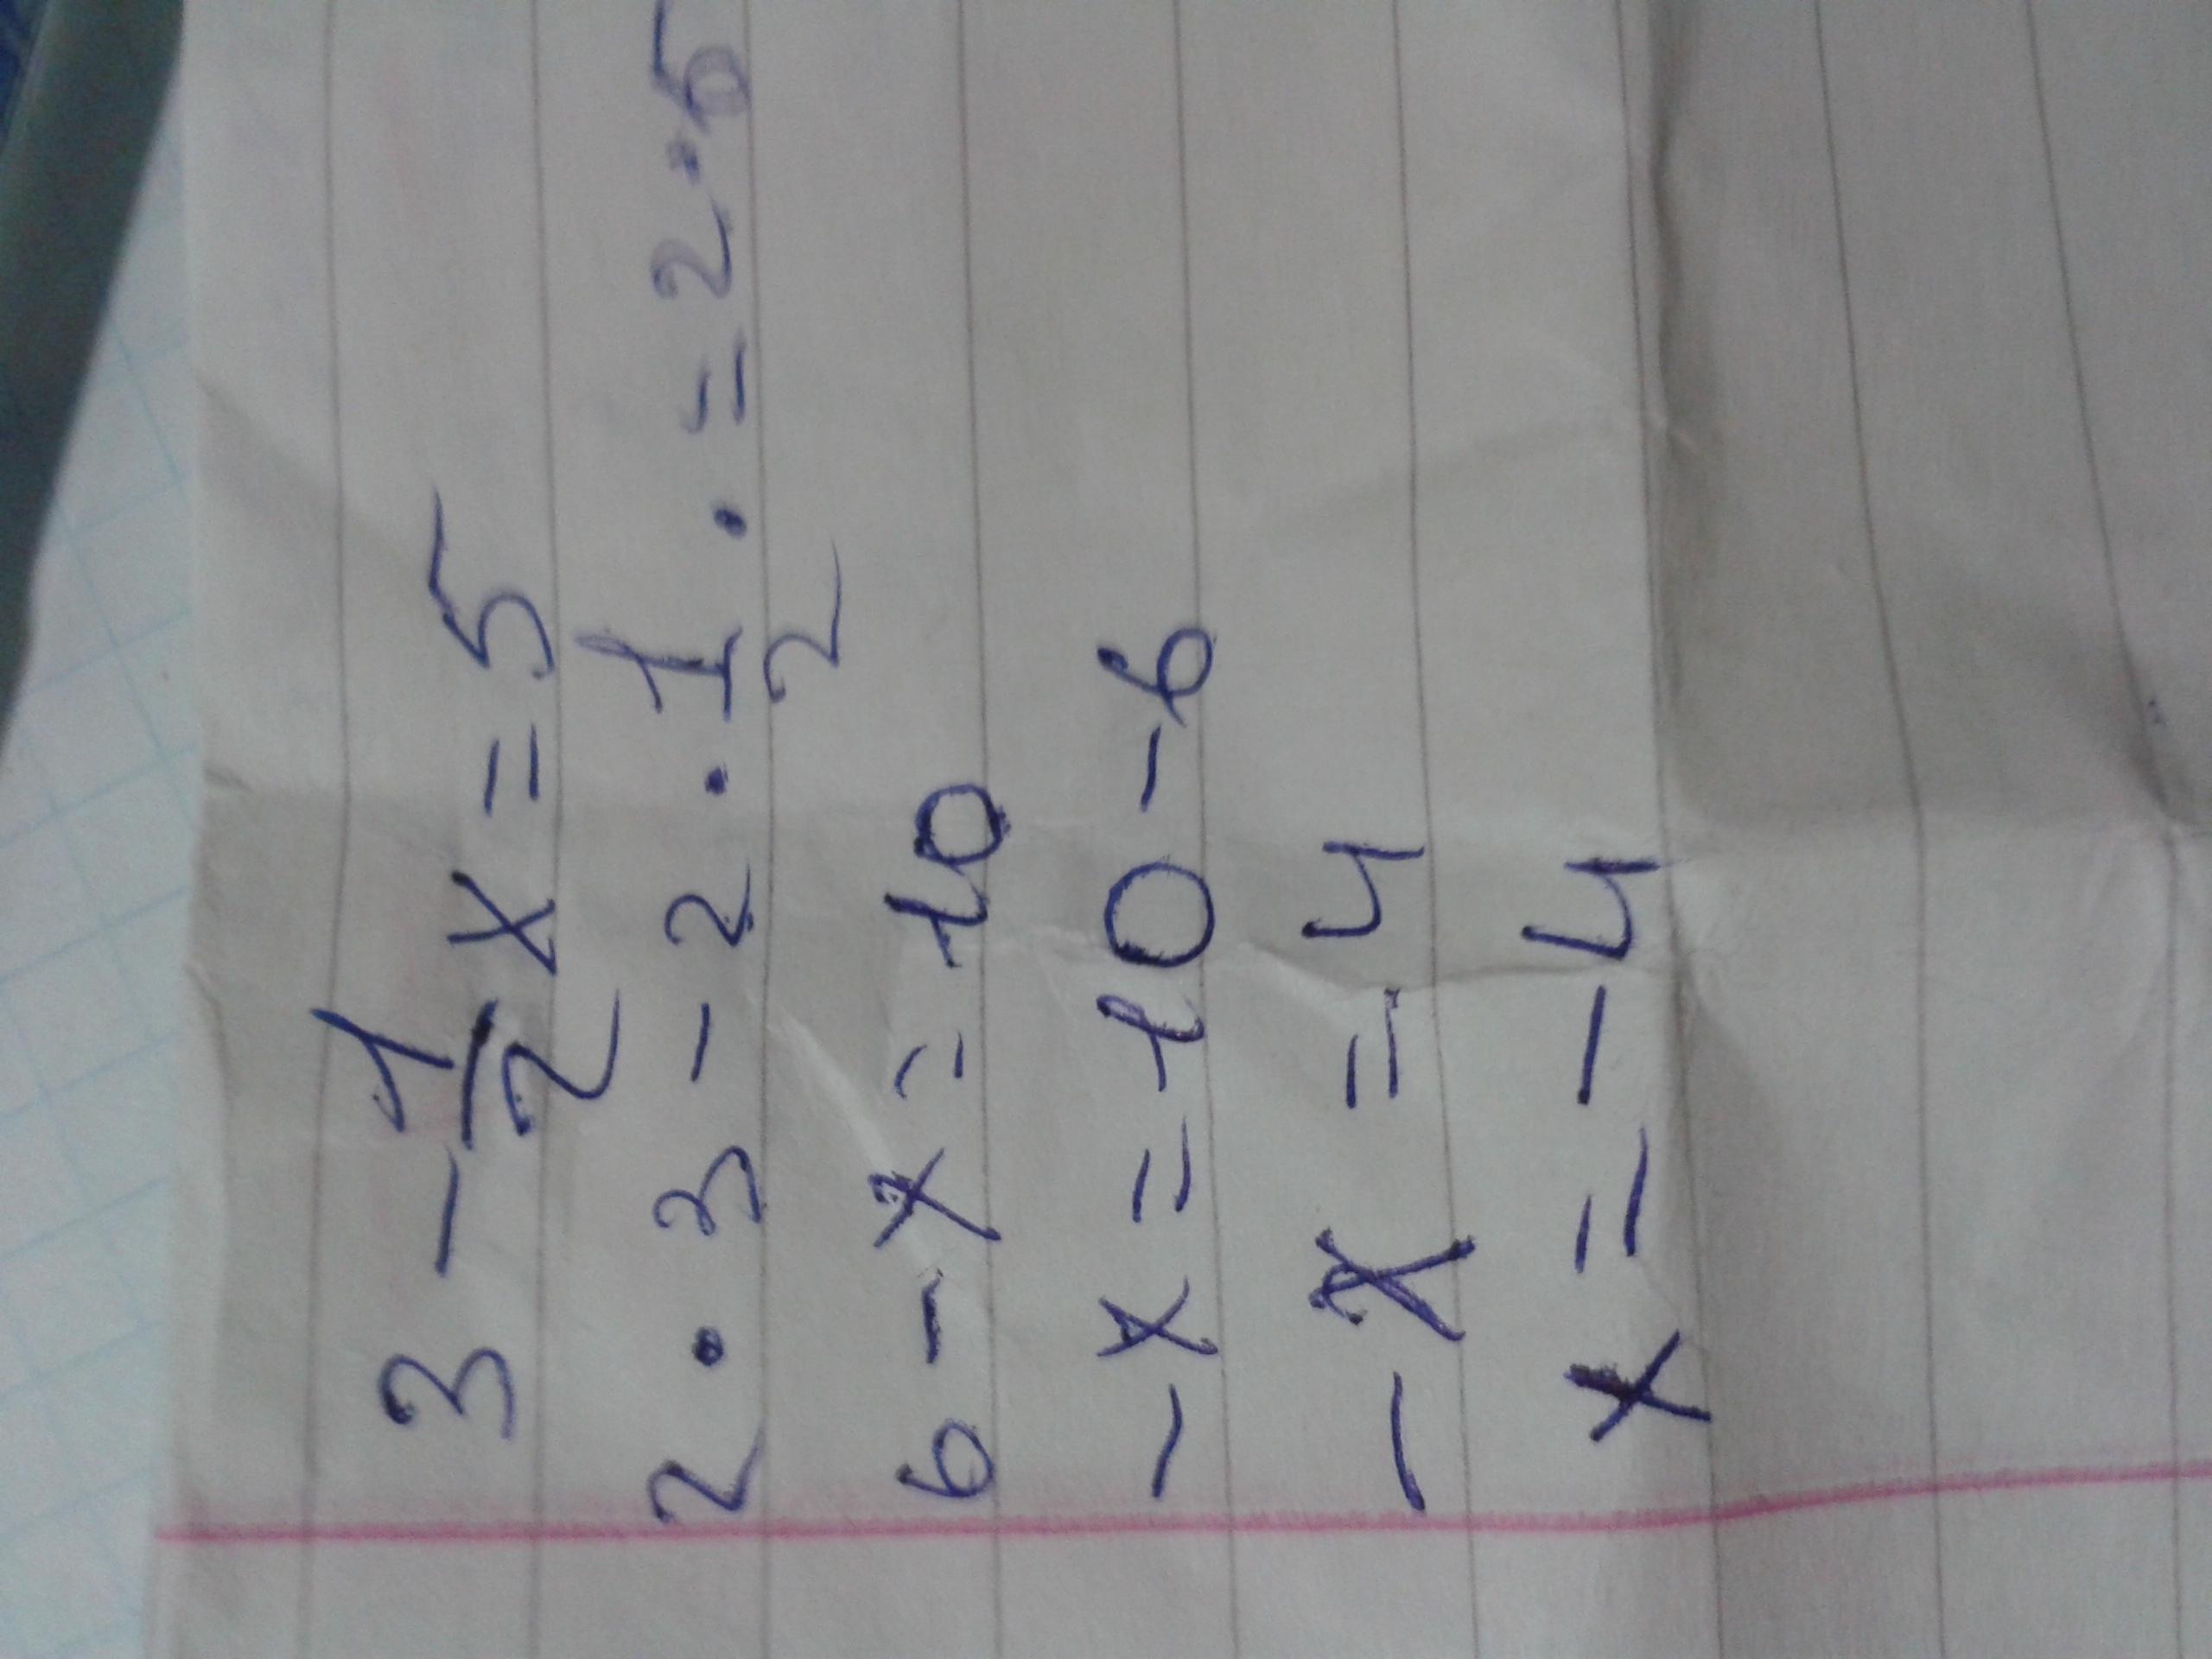 3 - 1/2 x = 5
2 · 3 - 2 · 1/2 · = 2 · 5
6 - x = 10
- x = 10 - 6
- x = 4
x = - 4